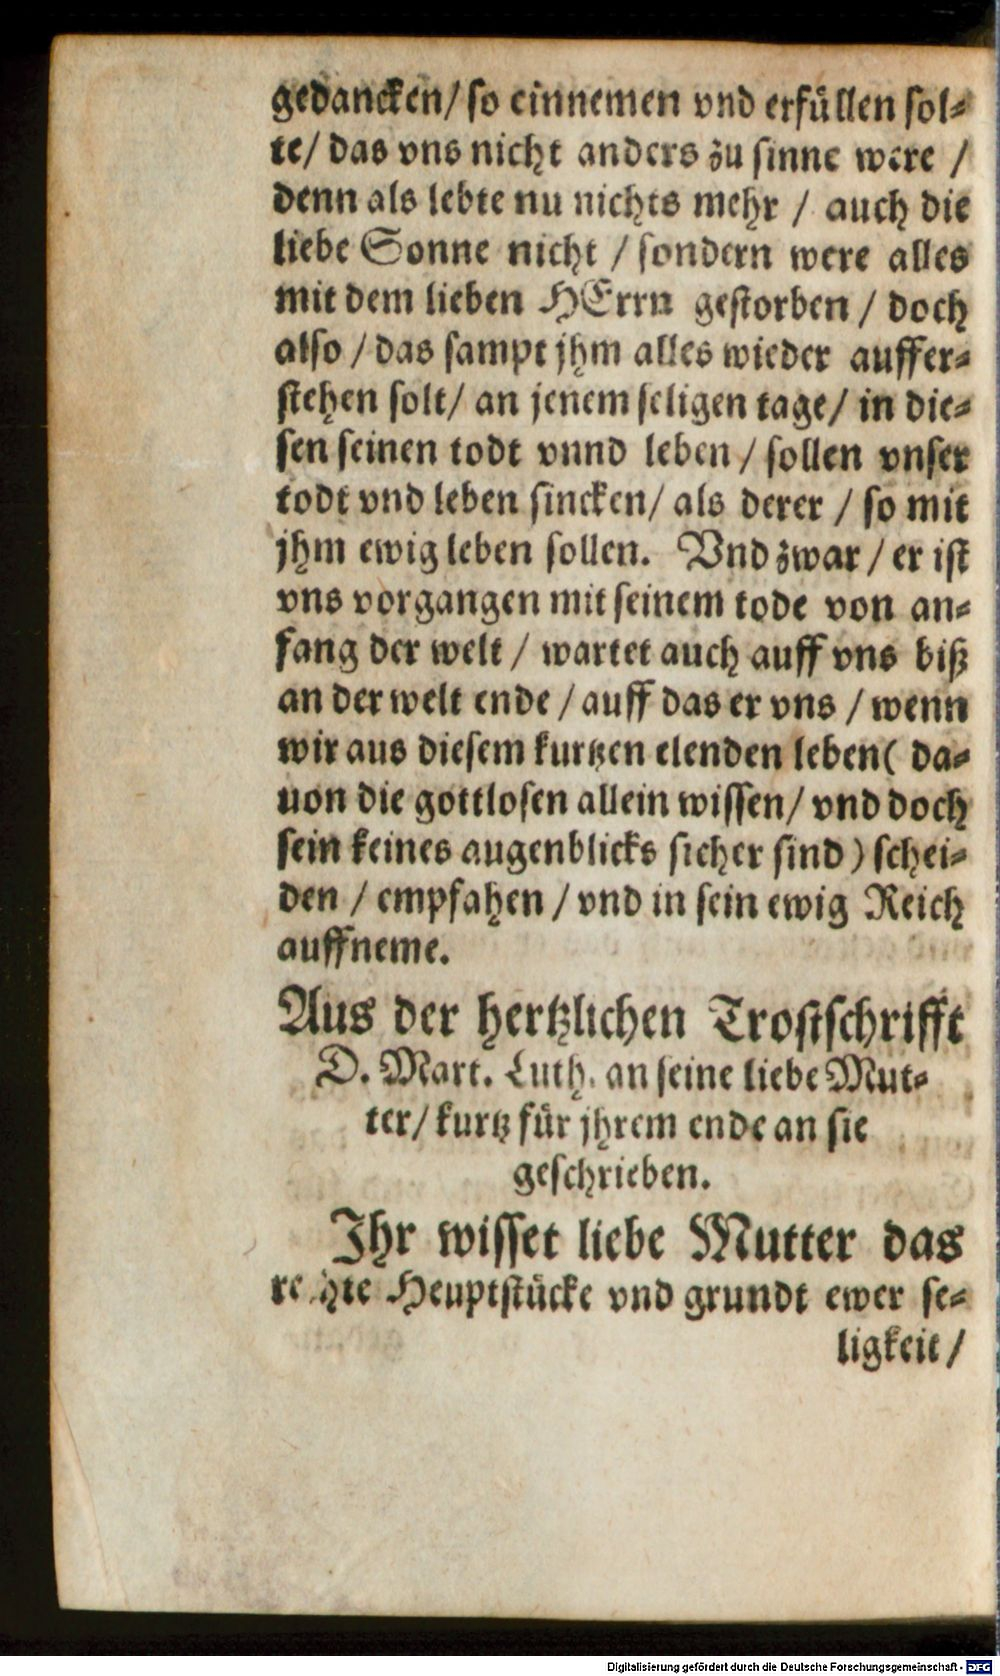 gedancken/ so einnemen vnd erfüllen sol-
te/ das vns nicht anders zu sinne were /
denn als lebte nu nichts mehr / auch die
liebe Sonne nicht / sondern were alles
mit dem lieben HErrn gestorben / doch
also / das sampt jhm alles wieder auffer-
stehen solt/ an jenem seligen tage/ in die-
sen seinen todt vnnd leben / sollen vnser
todt vnd leben sincken/ als derer / so mit
jhm ewig leben sollen. Vnd zwar / er ist
vns vorgangen mit seinem tode von an-
fang der welt / wartet auch auff vns biß
an der welt ende / auff das er vns / wenn
wir aus diesem kurtzen elenden leben( da-
uon die gottlosen allein wissen/ vnd doch
sein keines augenblicks sicher sind ) schei-
den / empfahen / vnd in sein ewig Reich
auffneme.
Aus der hertzlichen Trostschrifft
D. Mart. Luth. an seine liebe Mut-
ter/ kurtz für jhrem ende an sie
geschrieben.
Ihr wisset liebe Mutter das
rechte Heuptstücke vnd grundt ewer se-
ligkeit /
Digitalisierung gefördert durch die Deutsche Forschungsgemeinschaft - DFG